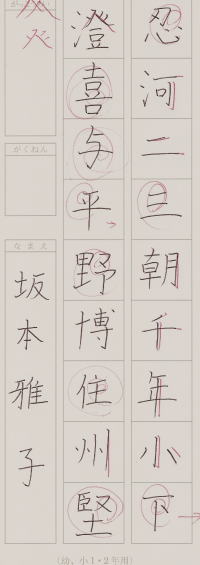 忍河二旦朝千年小下
澄喜与平野博住州堅
がくねん
なまえ
坂本雅子
(幼、小1・2年用)